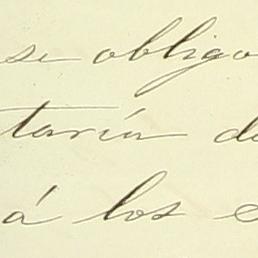 se obligo
taría de
á los e